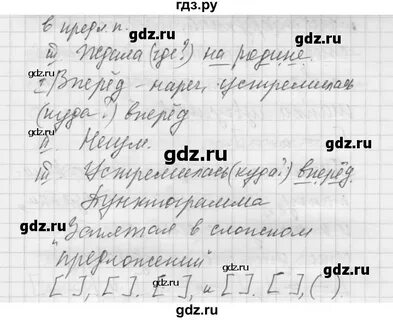 гдз.ру
в предл. п.
III Ждала (где?) на родине.
2) Вперёд - нареч., устремилась
(куда?) вперёд
II. Неизм.
III Устремилась (куда?) вперёд.
Пунктограмма
"Запятая в сложном
предложении"
[ ], [ ]. [ ], и [ ]. [ ], ( ).
gdz.ru
gdz.ru
gdz.ru
gdz.ru
gdz.ru
gdz.ru
gdz.ru
gdz.ru
gdz.ru
gdz.ru
gdz.ru